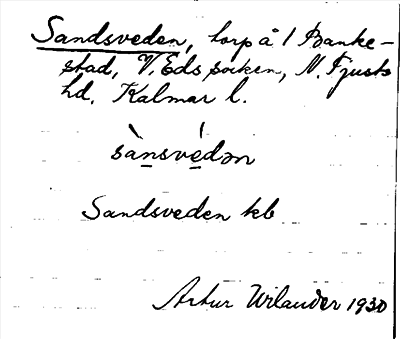 Sandsveden, torp å 1 Banke-
stad, V. Eds socken, N. Tjusts
hd. Kalmar l.
sànsvédən
Sandsveden kb
Artur Wilander 1930